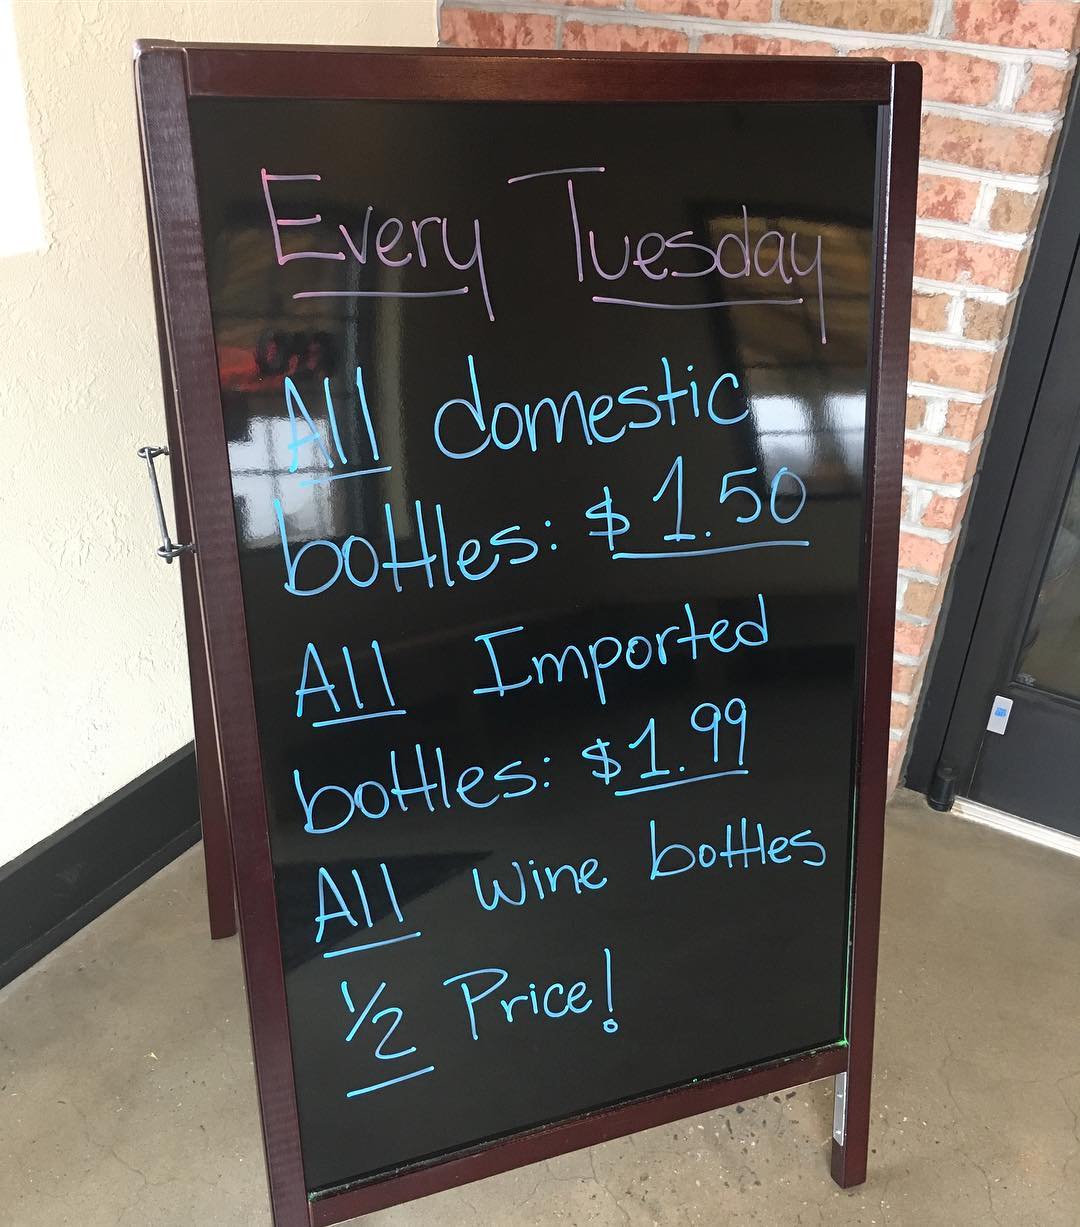 Every Tuesday
All domestic
bottles: $1.50
All Imported
bottles: $1.99
All Wine bottles
1/2 Price!